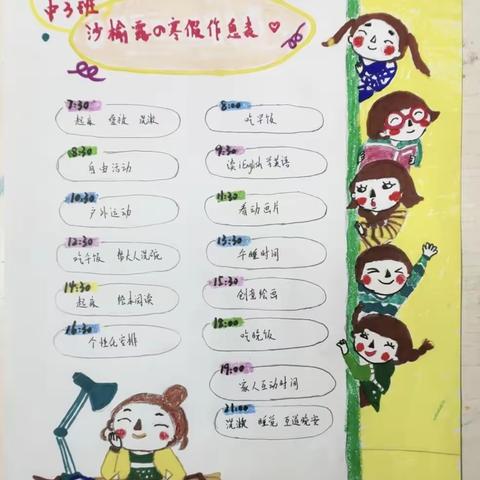 中3班
沙榆露の寒假作息表
7:30
起床 叠被 洗漱
8:00
吃早饭
8:30
自由活动
9:30
读iEnglish 学英语
10:30
户外运动
11:30
看动画片
12:30
吃午饭 帮大人洗碗
13:30
午睡时间
14:30
起床 绘本阅读
15:30
创意绘画
16:30
个性化安排
18:00
吃晚饭
19:00
家人互动时间
21:00
洗漱 睡觉 互道晚安